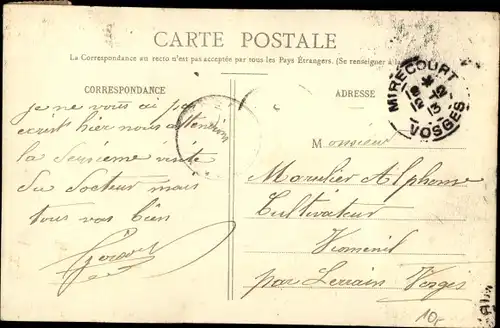 CARTE POSTALE
La Correspondance au recto n'est pas acceptée par tous les Pays Étrangers. (Se renseigner à la
CORRESPONDANCE
ADRESSE
je ne vous ai pas
écrist hier nous attendions
la deuxième visite
du docteur mais
tous vas bien
Monsieur
Alphonse
Cultivateur
Viomenil
par Lerrain Vosges
MIRECOURT
VOSGES
10c